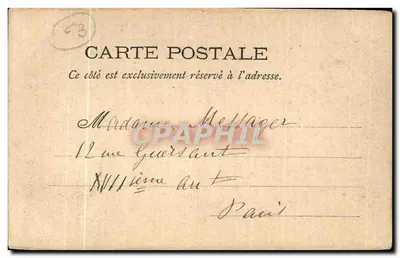 73
CARTE POSTALE
Ce côté est exclusivement réservé à l'adresse.
Madame Messager
CPARAMA
12 rue Guersant
XVIIième arr t
Paris